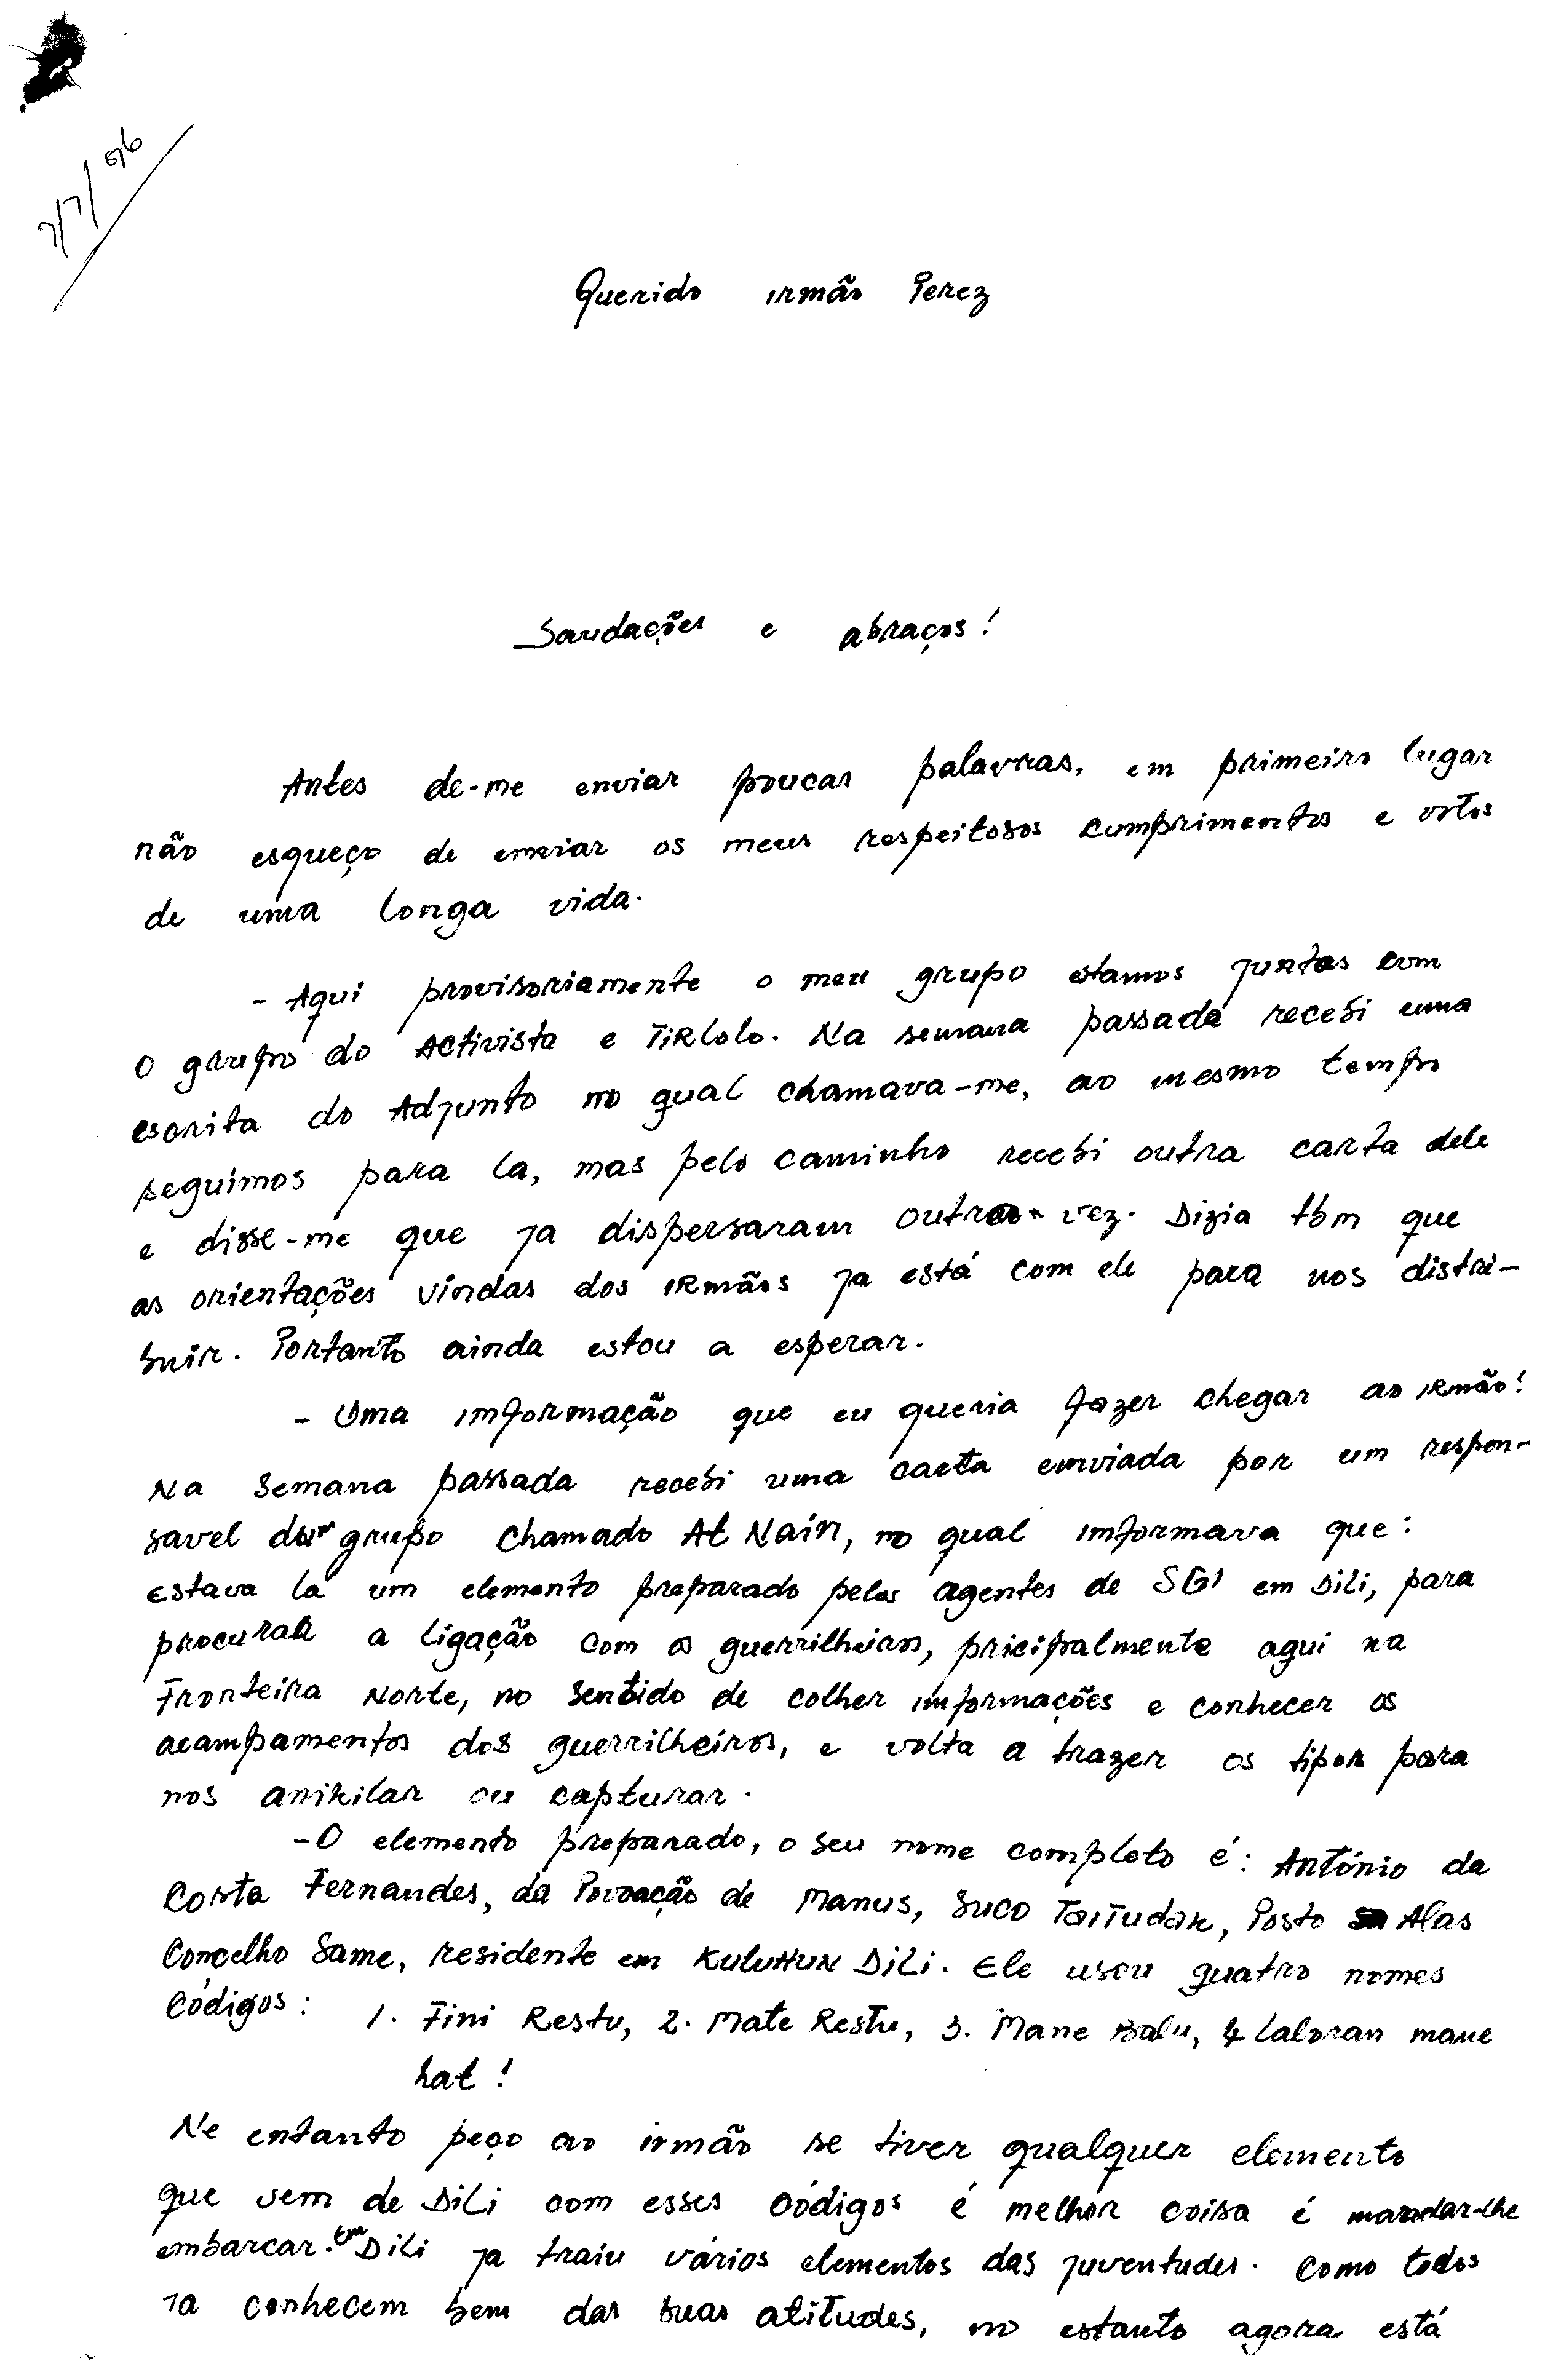 7/7/96
Querido irmão Perez
Saudações e abraços!
Antes de-me enviar poucas palavras, em primeiro lugar
não esqueço de enviar os meus respeitosos cumprimentos e votos
de uma longa vida.
- Aqui provisoriamente o meu grupo estamos juntos com
o grupo do Activista e TiRlolo. Na semana passada recebi uma
escrita do Adjunto no qual chamava-me, ao mesmo tempo
seguimos para la, mas pelo caminho recebi outra carta dele
e disse-me que ja dispersaram outra vez. Dizia tbm que
as orientações vindas dos IRmãos ja está com ele para nos distri-
buir. Portanto ainda estou a esperar.
- Uma imformação que eu queria fazer chegar ao IRmão!
Na semana passada recebi uma carta enviada por um respon-
savel dum grupo chamado At Nain, no qual imformava que:
Estava la um elemento preparado pelos agentes de SGI em Dili, para
procurar a ligação com os guerrilheiros, pricipalmente aqui na
Fronteira Norte, no sentido de colher imformações e conhecer os
acampamentos dos guerrilheiros, e volta a trazer os tipos para
nos anikilar ou capturar.
- O elemento preparado, o seu nome completo é: António da
Costa Fernandes, da Povoação de Manus, Suco TaiTudak, Posto Alas
Concelho Same, residente em KuluHuN DiLi. Ele usou quatro nomes
Códigos: 1. Fini Restu, 2. Mate Restu, 3. Mane Balu, 4 Laloran mane
hat!
Ne entanto peço ao irmão se tiver qualquer elemento
que vem de DiLi com esses códigos é melhor coisa é mandar-lhe
embarcar. Em DiLi ja traiu vários elementos das juventudes. Como todos
ja conhecem bem das suas atitudes, no estanto agora está